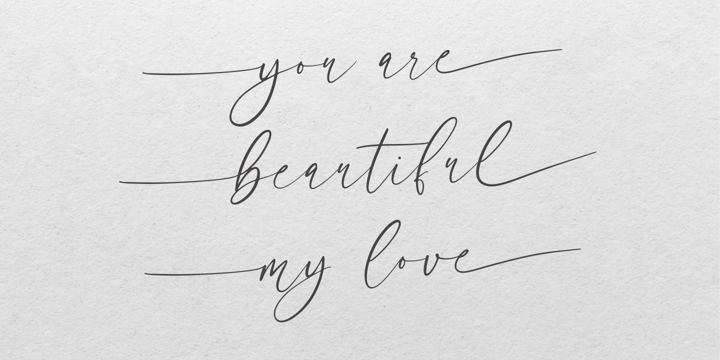 you are
beautiful
my love